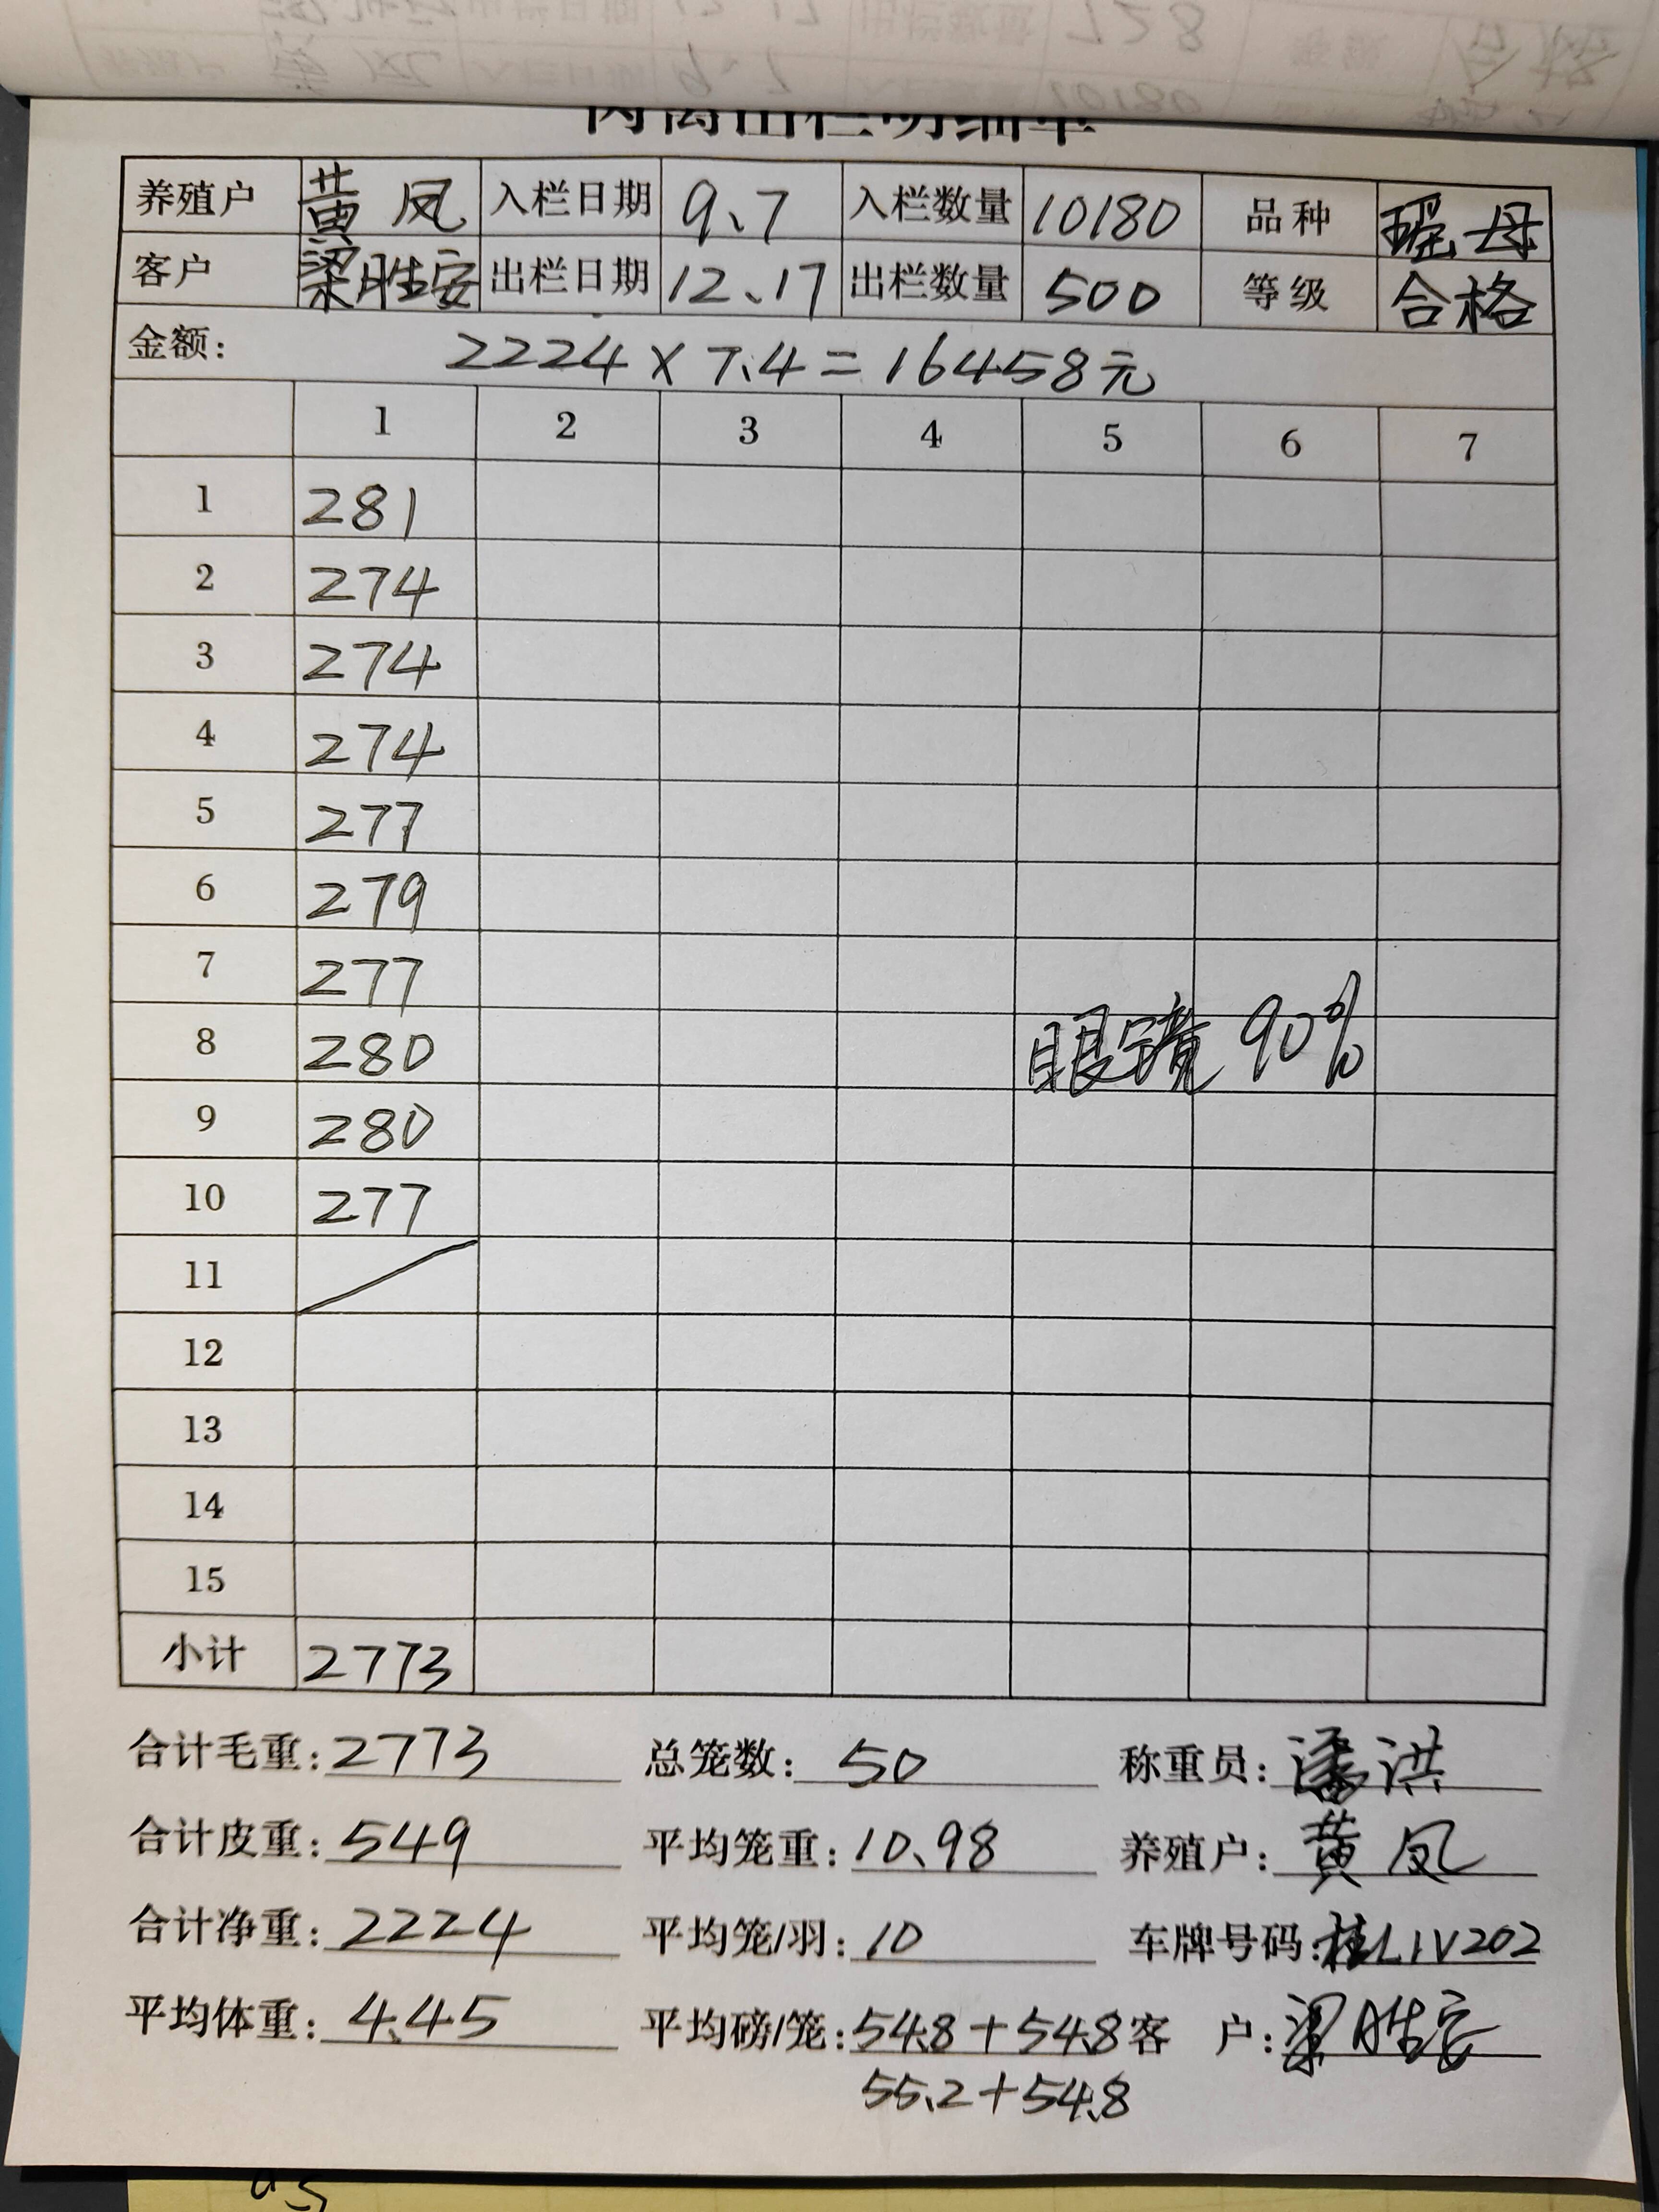 肉禽出栏明细单
养殖户 黄凤 入栏日期 9、7 入栏数量 10180 品种 瑶母
客户 梁胜安 出栏日期 12、17 出栏数量 500 等级 合格
金额: 2224×7.4=16458元
1 2 3 4 5 6 7
1 281
2 274
3 274
4 274
5 277
6 279
7 277
8 280 眼镜 90%
9 280
10 277
11
12
13
14
15
小计 2773
合计毛重: 2773 总笼数: 50 称重员: 潘洪
合计皮重: 549 平均笼重: 10.98 养殖户: 黄凤
合计净重: 2224 平均笼/羽: 10 车牌号码: 桂L1V202
平均体重: 4.45 平均磅/笼: 54.8+54.8 客户: 梁胜安
55.2+54.8